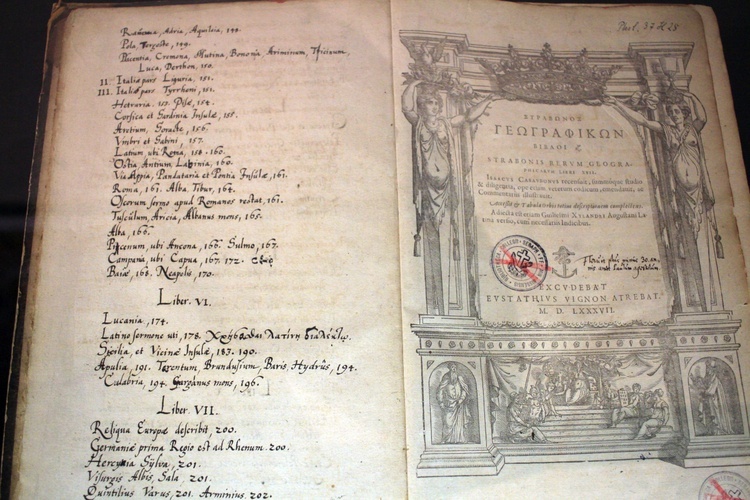 Ravenna, Adria, Aquileia, 149.
Pola, Tergeste, 149.
Placentia, Cremona, Mutina, Bononia, Ariminum, Ticinum,
Luca, Derthon, 150.
II. Italiæ pars Liguria, 151.
III. Italiæ pars Tyrrheni, 151.
Hetruria. 152. Pisæ, 154.
Corsica et Sardinia Insulæ, 155.
Aretium, Soracte, 156.
Vmbri et Sabini, 157.
Latium ubi Roma, 158. 160.
Ostia Antium Lavinia, 160.
Via Appia, Pandataria et Pontia Insulæ, 161.
Roma, 161. Alba, Tibur, 164.
Oscorum sermo apud Romanos restat, 161.
Tusculum, Aricia, Albanus mons, 165.
Alba, 166.
Picenum, ubi Ancona, 166. Sulmo, 167.
Campania, ubi Capua, 167. 172.
Baiæ, 168. Neapolis, 170.
Liber. VI.
Lucania, 174.
Latino sermone uti, 178. Χρῆσθαι λατίνη διαλέκτῳ.
Sicilia, et Vicinæ Insulæ, 183. 190.
Apulia, 191. Tarentum, Brundusium, Baris, Hydrûs, 194.
Calabria, 194. Garganus mons, 196.
Liber. VII.
Reliqua Europæ describit, 200.
Germaniæ prima Regio est ad Rhenum. 200.
Hercynia Sylva, 201.
Visurgis Albis, Sala, 201.
Quintilius Varus, 201. Arminius, 202.
ΣΤΡΑΒΩΝΟΣ
ΓΕΩΓΡΑΦΙΚΩΝ
ΒΙΒΛΟΙ ΙΖ
STRABONIS RERVM GEOGRA-
PHICARVM LIBRI XVII.
ISAACVS CASAVBONVS recensuit, summoque studio
& diligentia, ope etiam veterum codicum, emendauit, ac
Commentariis illustrauit.
Adiecta est etiam Gulielmi XYLANDRI Augustani La-
tina versio, cum necessariis Indicibus.
EXCVDEBAT
EVSTATHIVS VIGNON ATREBAT.
M. D. LXXXVII.